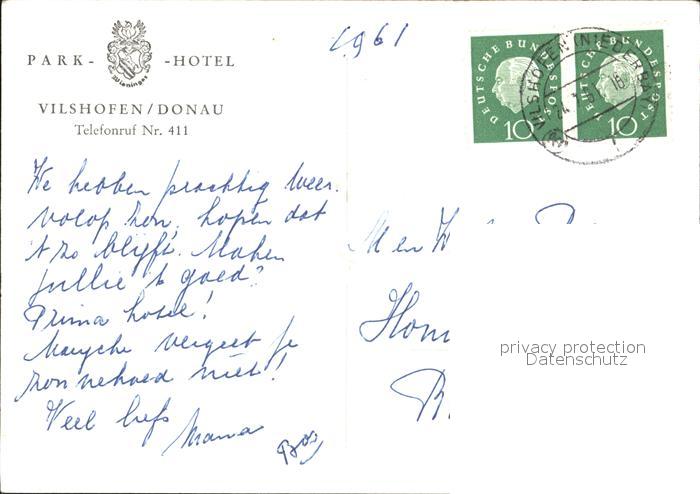 1961
PARK- -HOTEL
VILSHOFEN/DONAU
Telefonruf Nr. 411
DEUTSCHE BUNDESPOST
10
DEUTSCHE BUNDESPOST
10
VILSHOFEN (NIEDERBAY)
We hebben prachtig weer.
volop zon, hopen dat
't zo blijft. Maken
jullie 't goed?
Prima hotel!
vergeet je
zonnehoed niet!
Veel liefs
Mama
M en
privacy protection
Datenschutz